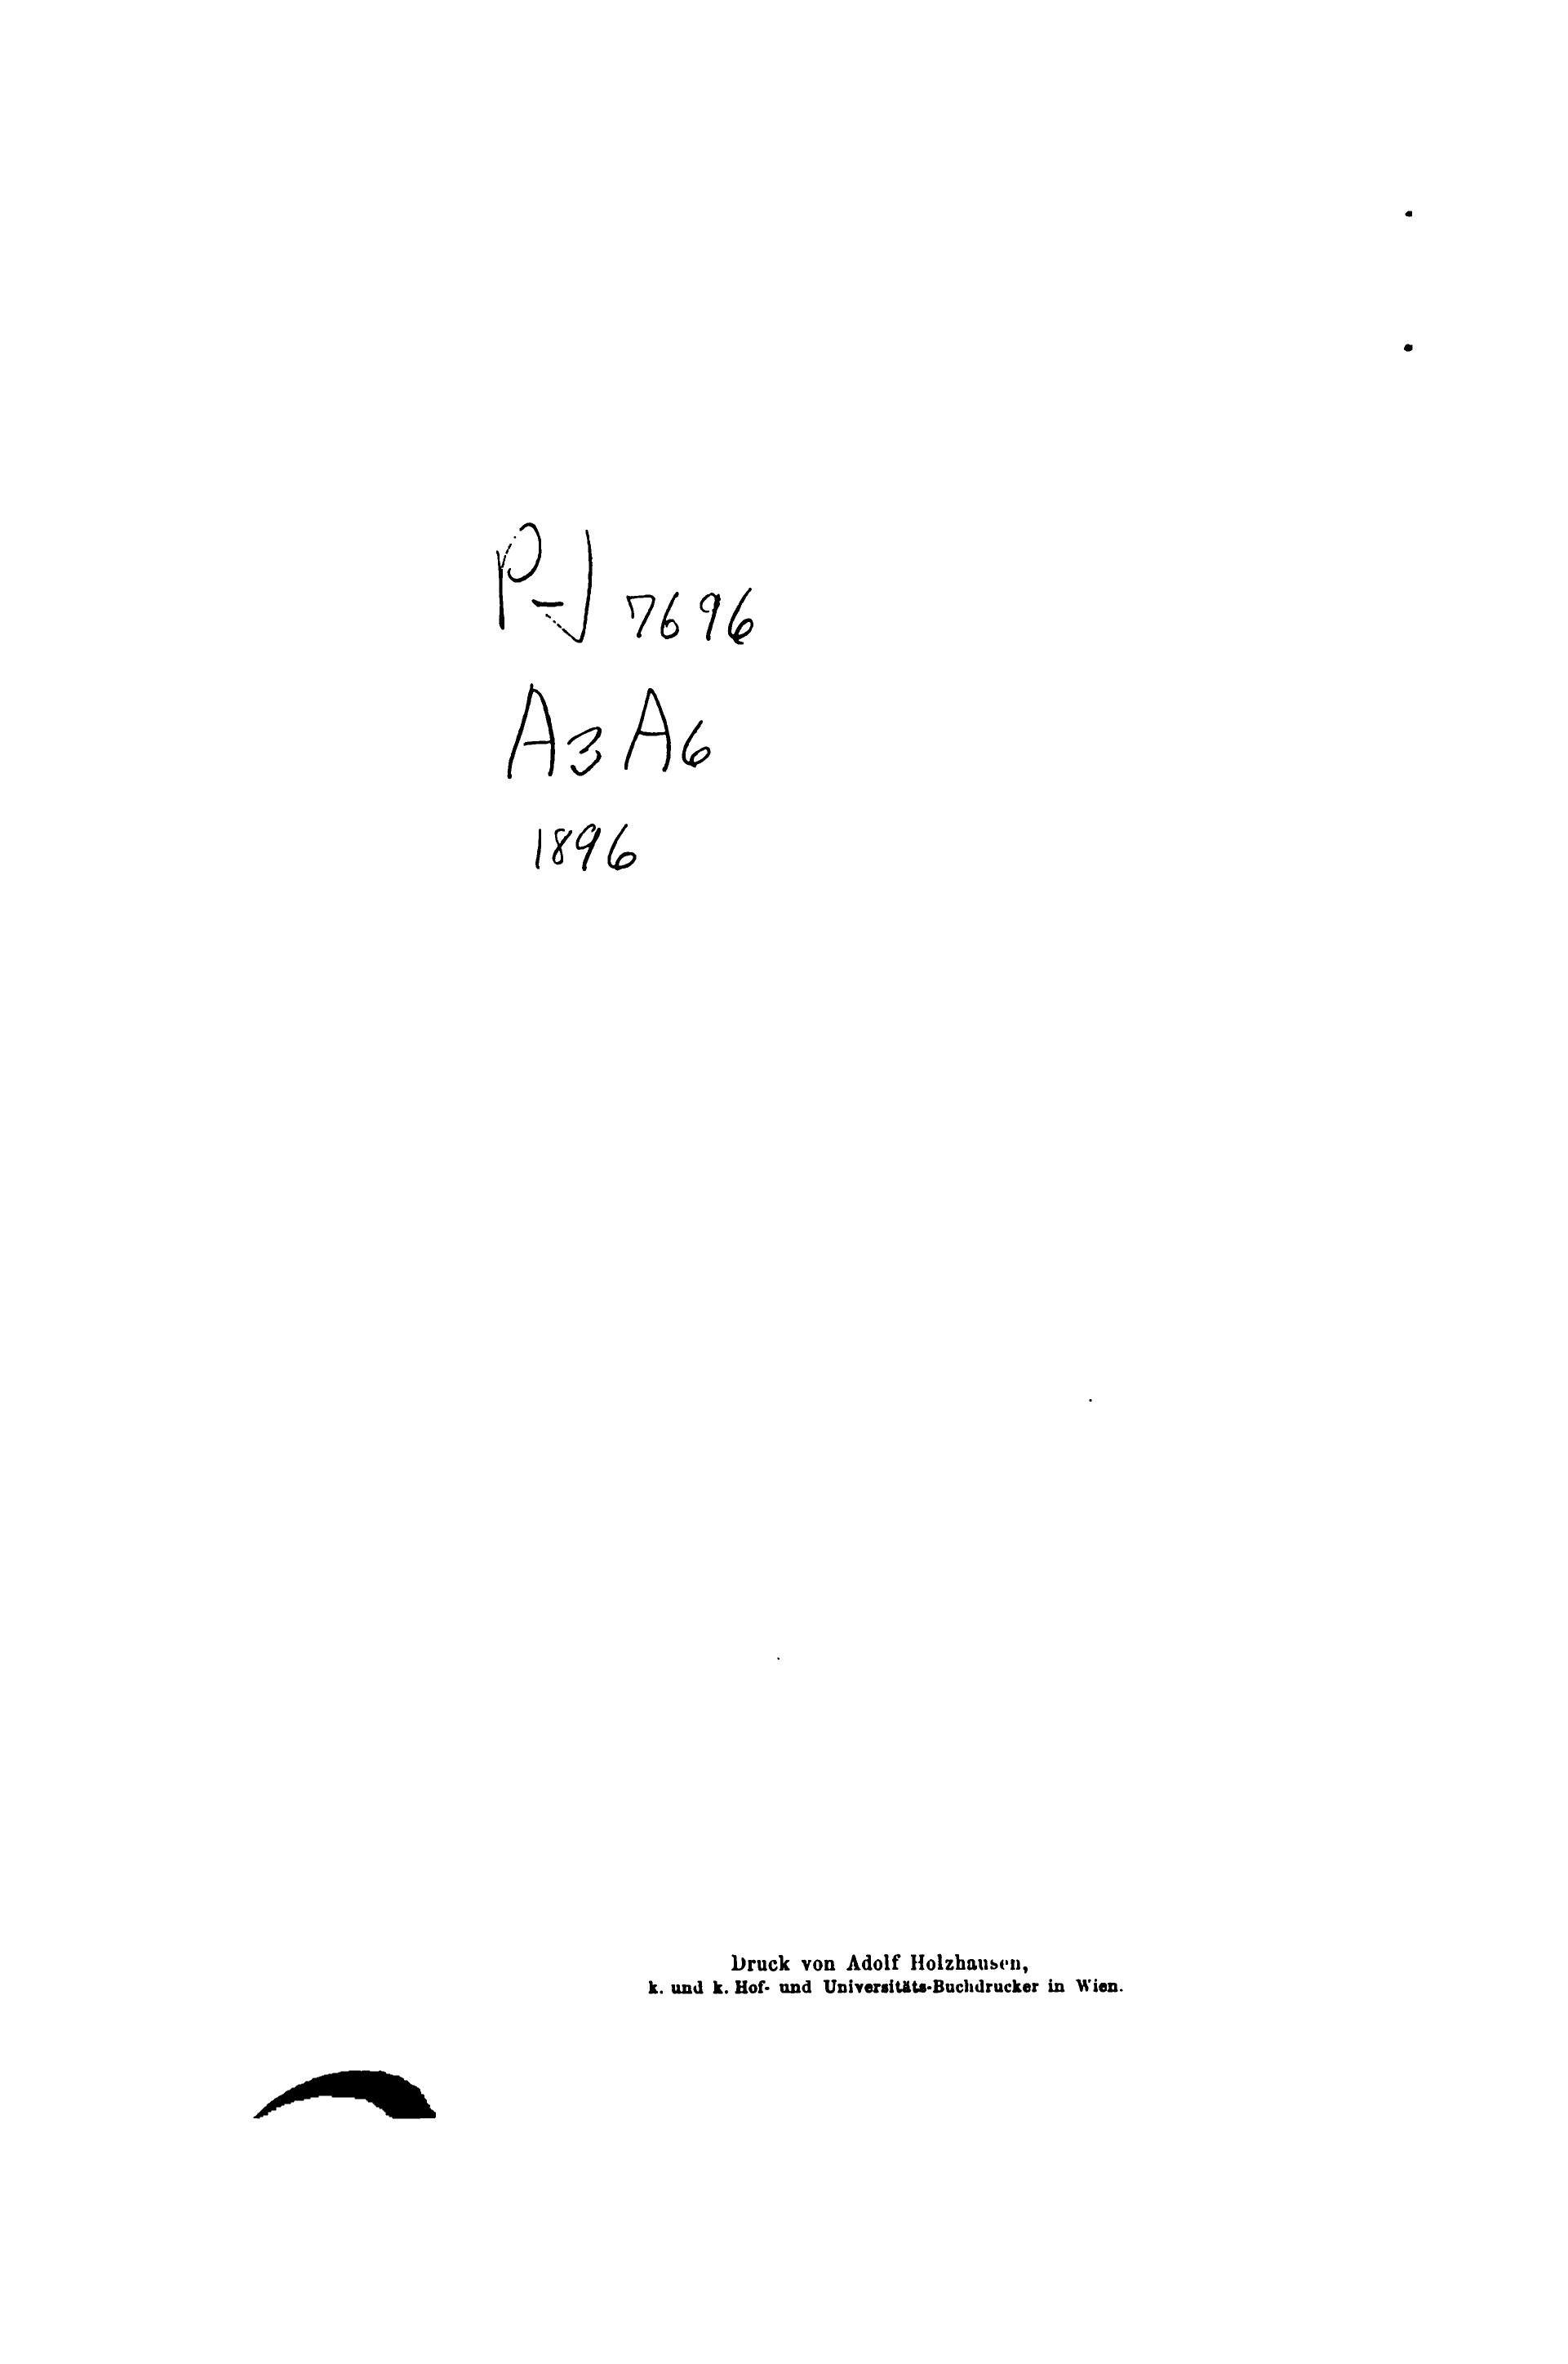 PJ 7696
A3 A6
1896
Druck von Adolf Holzhausen,
k. und k. Hof- und Universitäts-Buchdrucker in Wien.